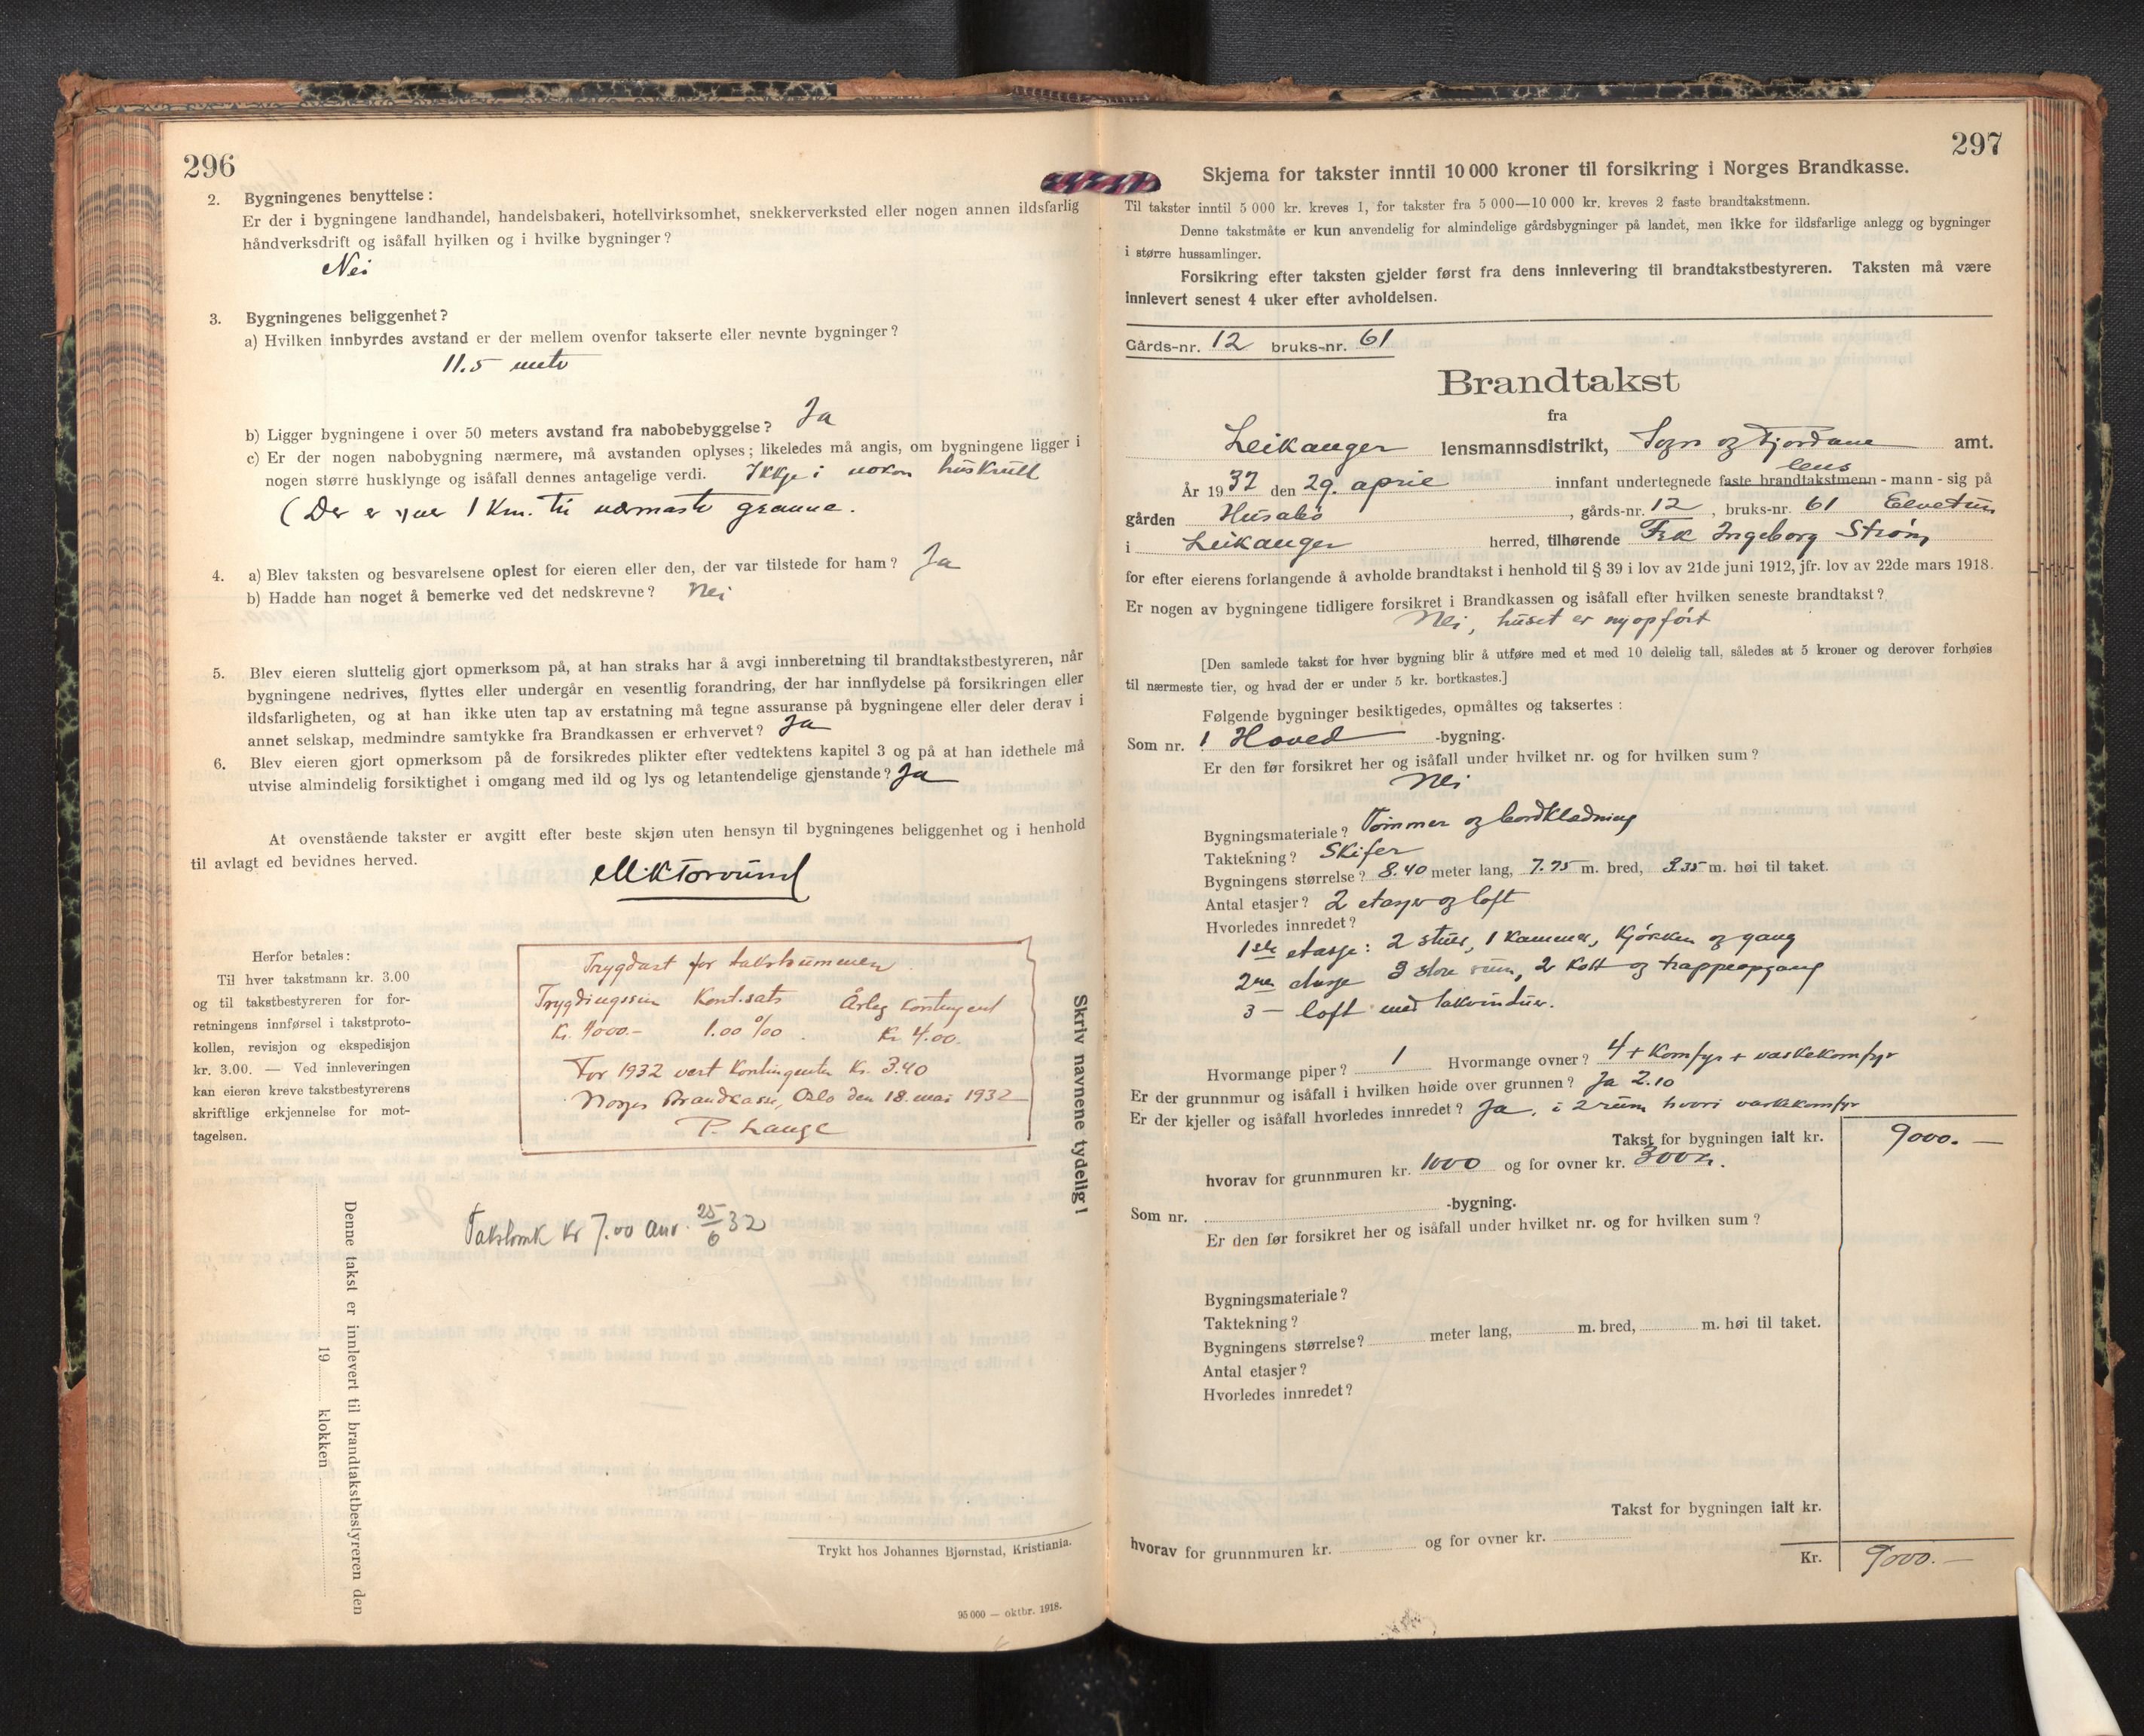 296
2. Bygningenes benyttelse:
Er der i bygningene landhandel, handelsbakeri, hotellvirksomhet, snekkerverksted eller nogen annen ildsfarlig
håndverksdrift og isåfall hvilken og i hvilke bygninger?
Nei
3. Bygningenes beliggenhet?
a) Hvilken innbyrdes avstand er der mellem ovenfor takserte eller nevnte bygninger?
11.5 meter
b) Ligger bygningene i over 50 meters avstand fra nabobebyggelse? Ja
c) Er der nogen nabobygning nærmere, må avstanden oplyses; likeledes må angis, om bygningene ligger i
nogen større husklynge og isåfall dennes antagelige verdi. Ikkje i nokon huskrull
(Der er 1 Km. til nærmaste granne.
4. a) Blev taksten og besvarelsene oplest for eieren eller den, der var tilstede for ham? Ja
b) Hadde han noget å bemerke ved det nedskrevne? Nei
5. Blev eieren sluttelig gjort opmerksom på, at han straks har å avgi innberetning til brandtakstbestyreren, når
bygningene nedrives, flyttes eller undergår en vesentlig forandring, der har innflydelse på forsikringen eller
ildsfarligheten, og at han ikke uten tap av erstatning må tegne assuranse på bygningene eller deler derav i
annet selskap, medmindre samtykke fra Brandkassen er erhvervet? Ja
6. Blev eieren gjort opmerksom på de forsikredes plikter efter vedtektens kapitel 3 og på at han idethele må
utvise almindelig forsiktighet i omgang med ild og lys og letantendelige gjenstande? Ja
At ovenstående takster er avgitt efter beste skjøn uten hensyn til bygningenes beliggenhet og i henhold
til avlagt ed bevidnes herved.
Herfor betales:
Til hver takstmann kr. 3.00
og til takstbestyreren for for-
retningens innførsel i takstproto-
kollen, revisjon og ekspedisjon
kr. 3.00. — Ved innleveringen
kan eieren kreve takstbestyrerens
skriftlige erkjennelse for mot-
tagelsen.
Trygdast for takstsummen
Trygdingssum Kont.sats Årleg kontingent
Kr. 9000.- 1.00 ‰ Kr 4.00.
For 1932 vert kontingenten Kr. 3.40
Norges Brandkasse, Oslo den 18. mai 1932
P. Lange
Kr 7.00 25/6 32
Skriv navnene tydelig!
Denne takst er innlevert til brandtakstbestyreren den
19 klokken
Trykt hos Johannes Bjørnstad, Kristiania.
95 000 — oktbr. 1918.
297
Skjema for takster inntil 10 000 kroner til forsikring i Norges Brandkasse.
Til takster inntil 5 000 kr. kreves 1, for takster fra 5 000—10 000 kr. kreves 2 faste brandtakstmenn.
Denne takstmåte er kun anvendelig for almindelige gårdsbygninger på landet, men ikke for ildsfarlige anlegg og bygninger
i større hussamlinger.
Forsikring efter taksten gjelder først fra dens innlevering til brandtakstbestyreren. Taksten må være
innlevert senest 4 uker efter avholdelsen.
Gårds-nr. 12 bruks-nr. 61
Brandtakst
fra
Leikanger lensmannsdistrikt, Sogn og Fjordane amt.
lens
År 1932 den 29. april innfant undertegnede faste brandtakstmenn - mann - sig på
gården Husabø, gårds-nr. 12, bruks-nr. 61 Elvetun
i Leikanger herred, tilhørende Frk Ingeborg Strøm
for efter eierens forlangende å avholde brandtakst i henhold til § 39 i lov av 21de juni 1912, jfr. lov av 22de mars 1918.
Er nogen av bygningene tidligere forsikret i Brandkassen og isåfall efter hvilken seneste brandtakst?
Nei, huset er nyopført
[Den samlede takst for hver bygning blir å utføre med et med 10 delelig tall, således at 5 kroner og derover forhøies
til nærmeste tier, og hvad der er under 5 kr. bortkastes.]
Følgende bygninger besiktigedes, opmåltes og taksertes:
Som nr. 1 Hoved -bygning.
Er den før forsikret her og isåfall under hvilket nr. og for hvilken sum?
Nei
Bygningsmateriale? Tømmer og bordklædning
Taktekning? Skifer
Bygningens størrelse? 8.40 meter lang, 7.75 m. bred, 3.35 m. høi til taket.
Antal etasjer? 2 etasjer og loft
Hvorledes innredet?
1ste etasje: 2 stuer, 1 kammer, kjøkken og gang
2nen etasje 3 store rum, 2 kott og trappeopgang
3 — loft med takvinduer.
Hvormange piper? 1 Hvormange ovner? 4 + komfyr + vaskekomfyr
Er der grunnmur og isåfall i hvilken høide over grunnen? Ja 2.10
Er der kjeller og isåfall hvorledes innredet? Ja, i 2 rum hvori vaskekomfyr
Takst for bygningen ialt kr. 9000.—
hvorav for grunnmuren kr. 1000 og for ovner kr. 300 kr.
Som nr. -bygning.
Er den før forsikret her og isåfall under hvilket nr. og for hvilken sum?
Bygningsmateriale?
Taktekning?
Bygningens størrelse? meter lang, m. bred, m. høi til taket.
Antal etasjer?
Hvorledes innredet?
Takst for bygningen ialt kr.
hvorav for grunnmuren kr. og for ovner kr.
Kr. 9000.—